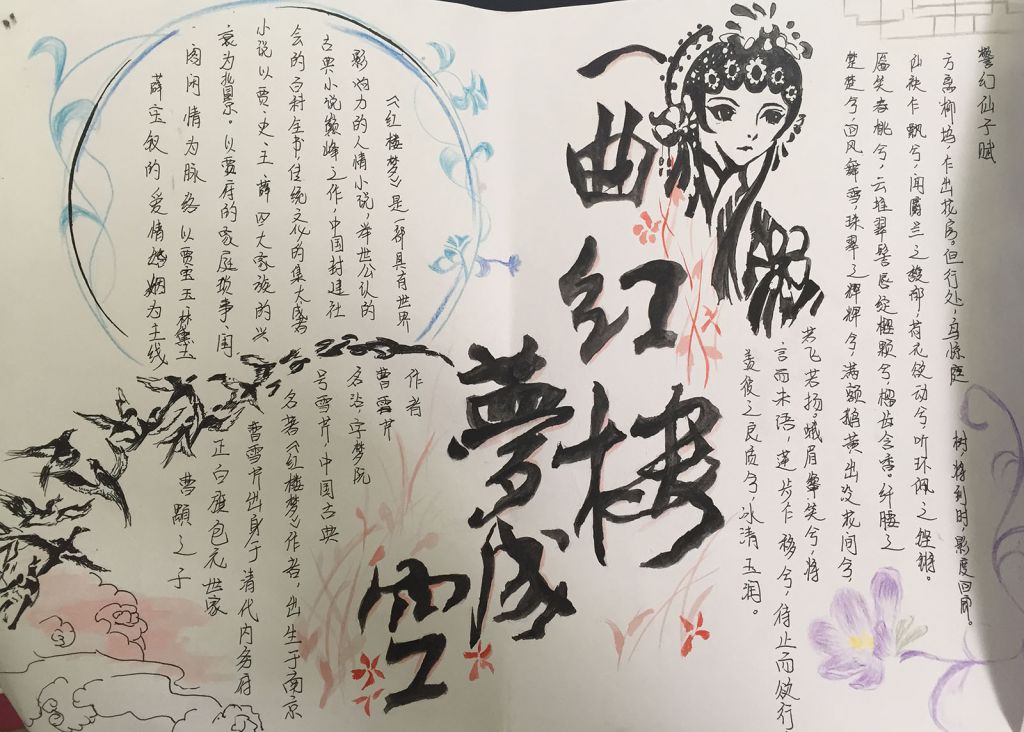 警幻仙子赋
方离柳坞，乍出花房。但行处，鸟惊庭
树，将到时，影度回廊。
仙袂乍飘兮，闻麝兰之馥郁，荷衣欲动兮，听环佩之铿锵。
靥笑春桃兮，云堆翠髻，唇绽樱颗兮，榴齿含香。纤腰之
楚楚兮，回风舞雪，珠翠之辉辉兮，满额鹅黄，出没花间兮，
若飞若扬，蛾眉颦笑兮，将
言而未语，莲步乍移兮，待止而欲行
羡彼之良质兮，冰清玉润。
一曲红楼
梦成空
《红楼梦》是一部具有世界
影响力的人情小说，举世公认的
古典小说巅峰之作，中国封建社
会的百科全书，传统文化的集大成者
小说以贾、史、王、薛四大家族的兴
衰为背景。以贾府的家庭琐事、闺
阁闲情为脉络，以贾宝玉、林黛玉
薛宝钗的爱情婚姻为主线
作者
曹雪芹
名沾，字梦阮
号雪芹，中国古典
名著《红楼梦》作者，出生于南京
曹雪芹出身于清代内务府
正白旗包衣世家
曹顒之子